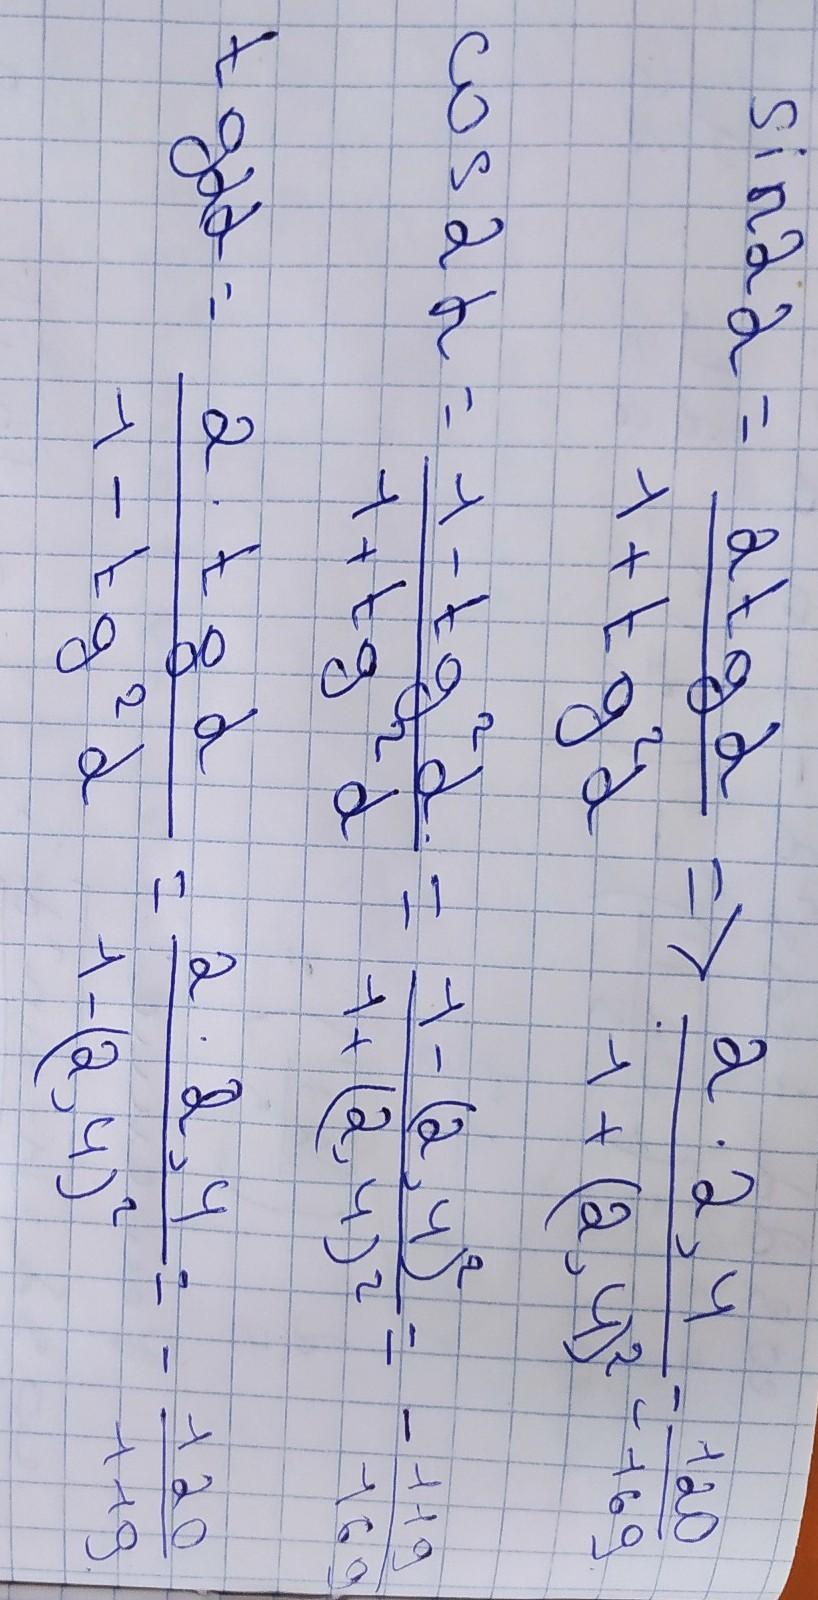 sin2α = 2tgα / 1 + tg²α => 2 · 2,4 / 1 + (2,4)² = 120 / 169
cos2α = 1 - tg²α / 1 + tg²α = 1 - (2,4)² / 1 + (2,4)² = - 119 / 169
tg2α = 2 · tgα / 1 - tg²α = 2 · 2,4 / 1 - (2,4)² = - 120 / 119